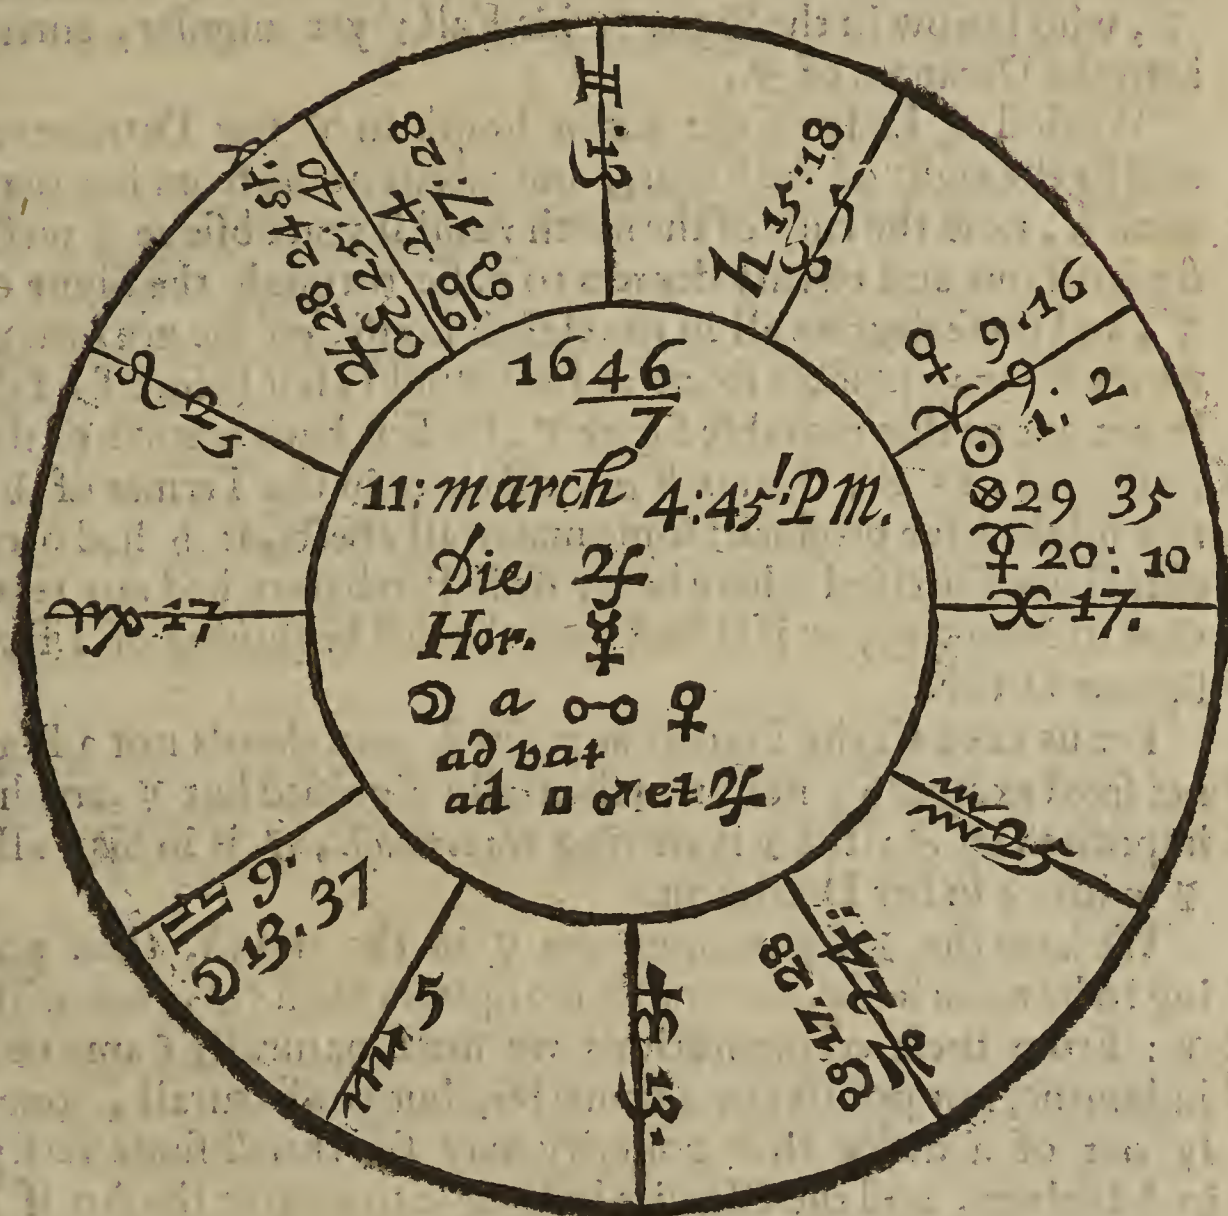 ♊. 13
♄ 15:18
♉ 5
♀ 9.16
♈ 9
☉ 1:2
⊗ 29 35
☿ 20:10
♓ 17.
♒ 25
♑ 24:
☋ 17.28
♐ 13.
♏ 5
♎ 9.
☽ 13.37
♍ 17
♌ 25
♃ 28 24 st.
♂ 25:40
♋ 24
☊ 17:28
1646
7
11: march 4:45' P M.
Die ♃
Hor. ☿
☽ a ☍ ♀
ad vat
ad □ ♂ et ♃